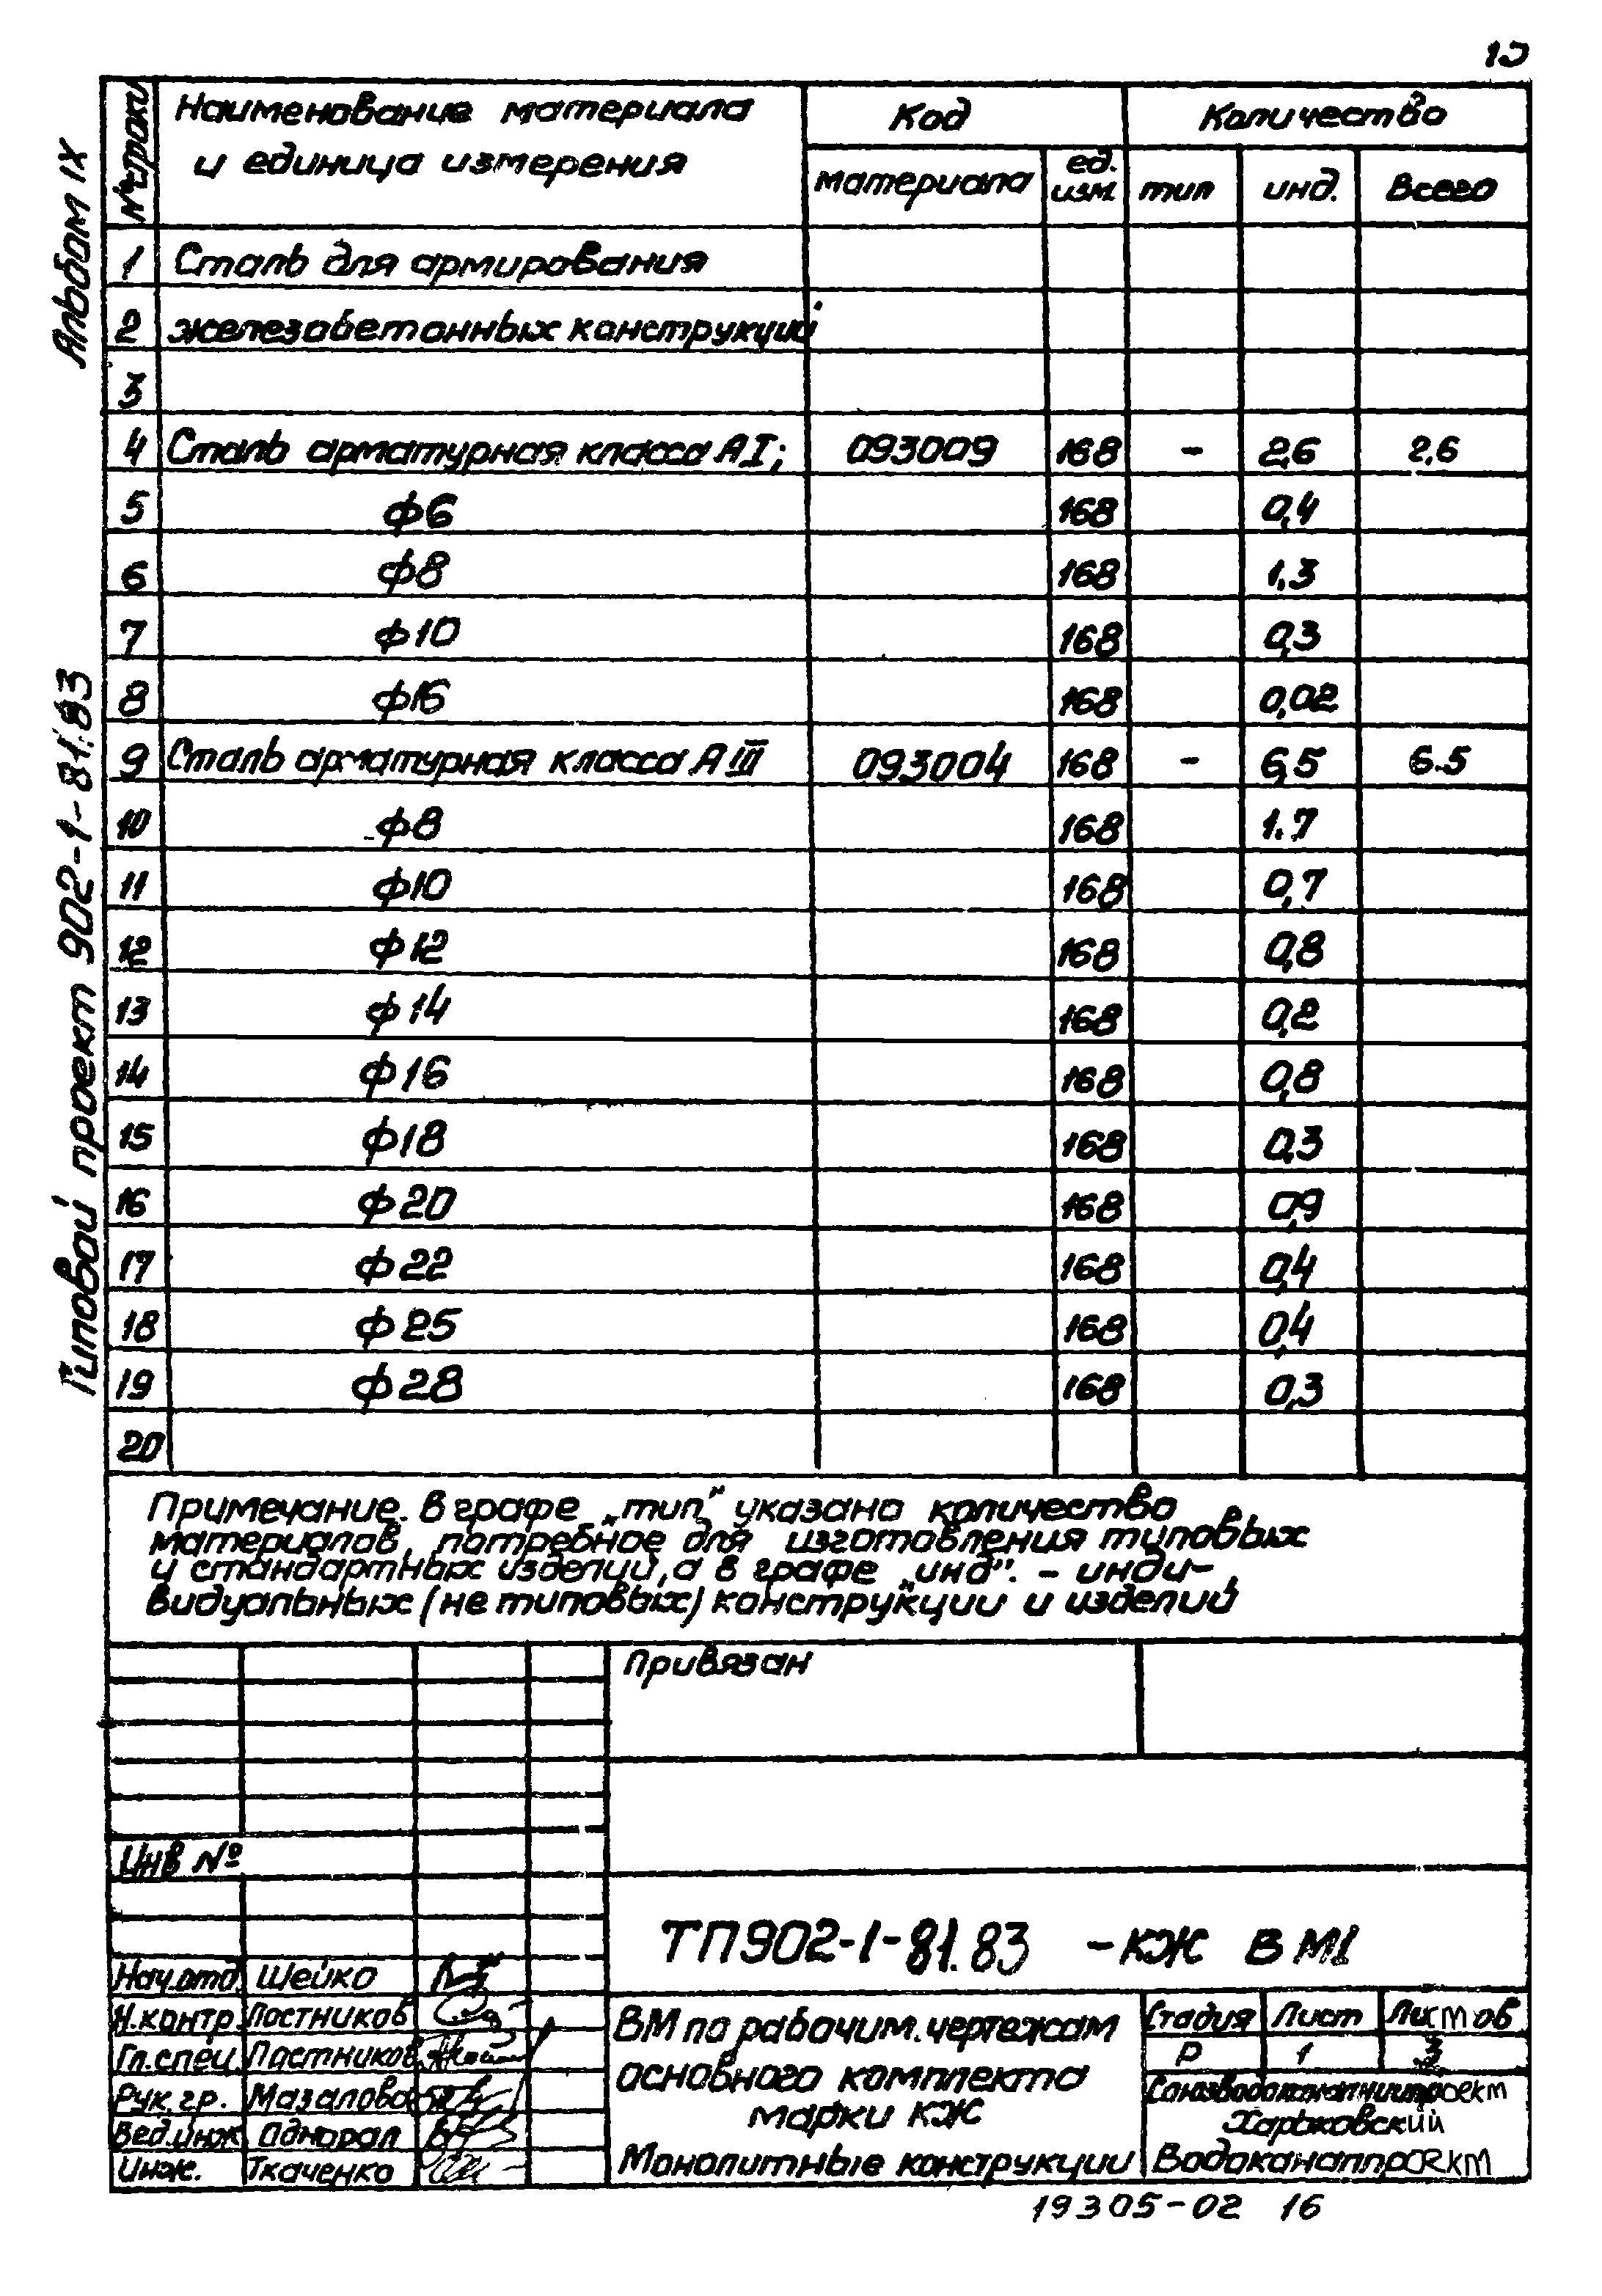 15
Альбом IX
Типовой проект 902-1-81.83
№ строки
Наименование материала
и единица измерения
Код
Количество
материала
ед.
изм.
тип
инд.
Всего
1 Сталь для армирования
2 железобетонных конструкций
3
4 Сталь арматурная класса АI; 093009 168 - 2,6 2,6
5 ф6 168 0,4
6 ф8 168 1,3
7 ф10 168 0,3
8 ф16 168 0,02
9 Сталь арматурная класса АIII 093004 168 - 6,5 6.5
10 ф8 168 1.7
11 ф10 168 0,7
12 ф12 168 0,8
13 ф14 168 0,2
14 ф16 168 0,8
15 ф18 168 0,3
16 ф20 168 0,9
17 ф22 168 0,4
18 ф25 168 0,4
19 ф28 168 0,3
20
Примечание. В графе „тип" указано количество
материалов, потребное для изготовления типовых
и стандартных изделий, а в графе „инд". - инди-
видуальных (не типовых) конструкций и изделий
Привязан
Инв №
ТП902-1-81.83 -КЖ ВМ1
Нач.отд. Шейко
Н.контр. Постников
Гл.спец. Постников
Рук.гр. Мазалова
Вед.инж Однорал
Инж. Ткаченко
ВМ по рабочим.чертежам
основного комплекта
марки КЖ
Монолитные конструкции
Стадия Лист Листов
Р 1 3
Союзводоканалниипроект
Харьковский
Водоканалпроект
19305-02 16